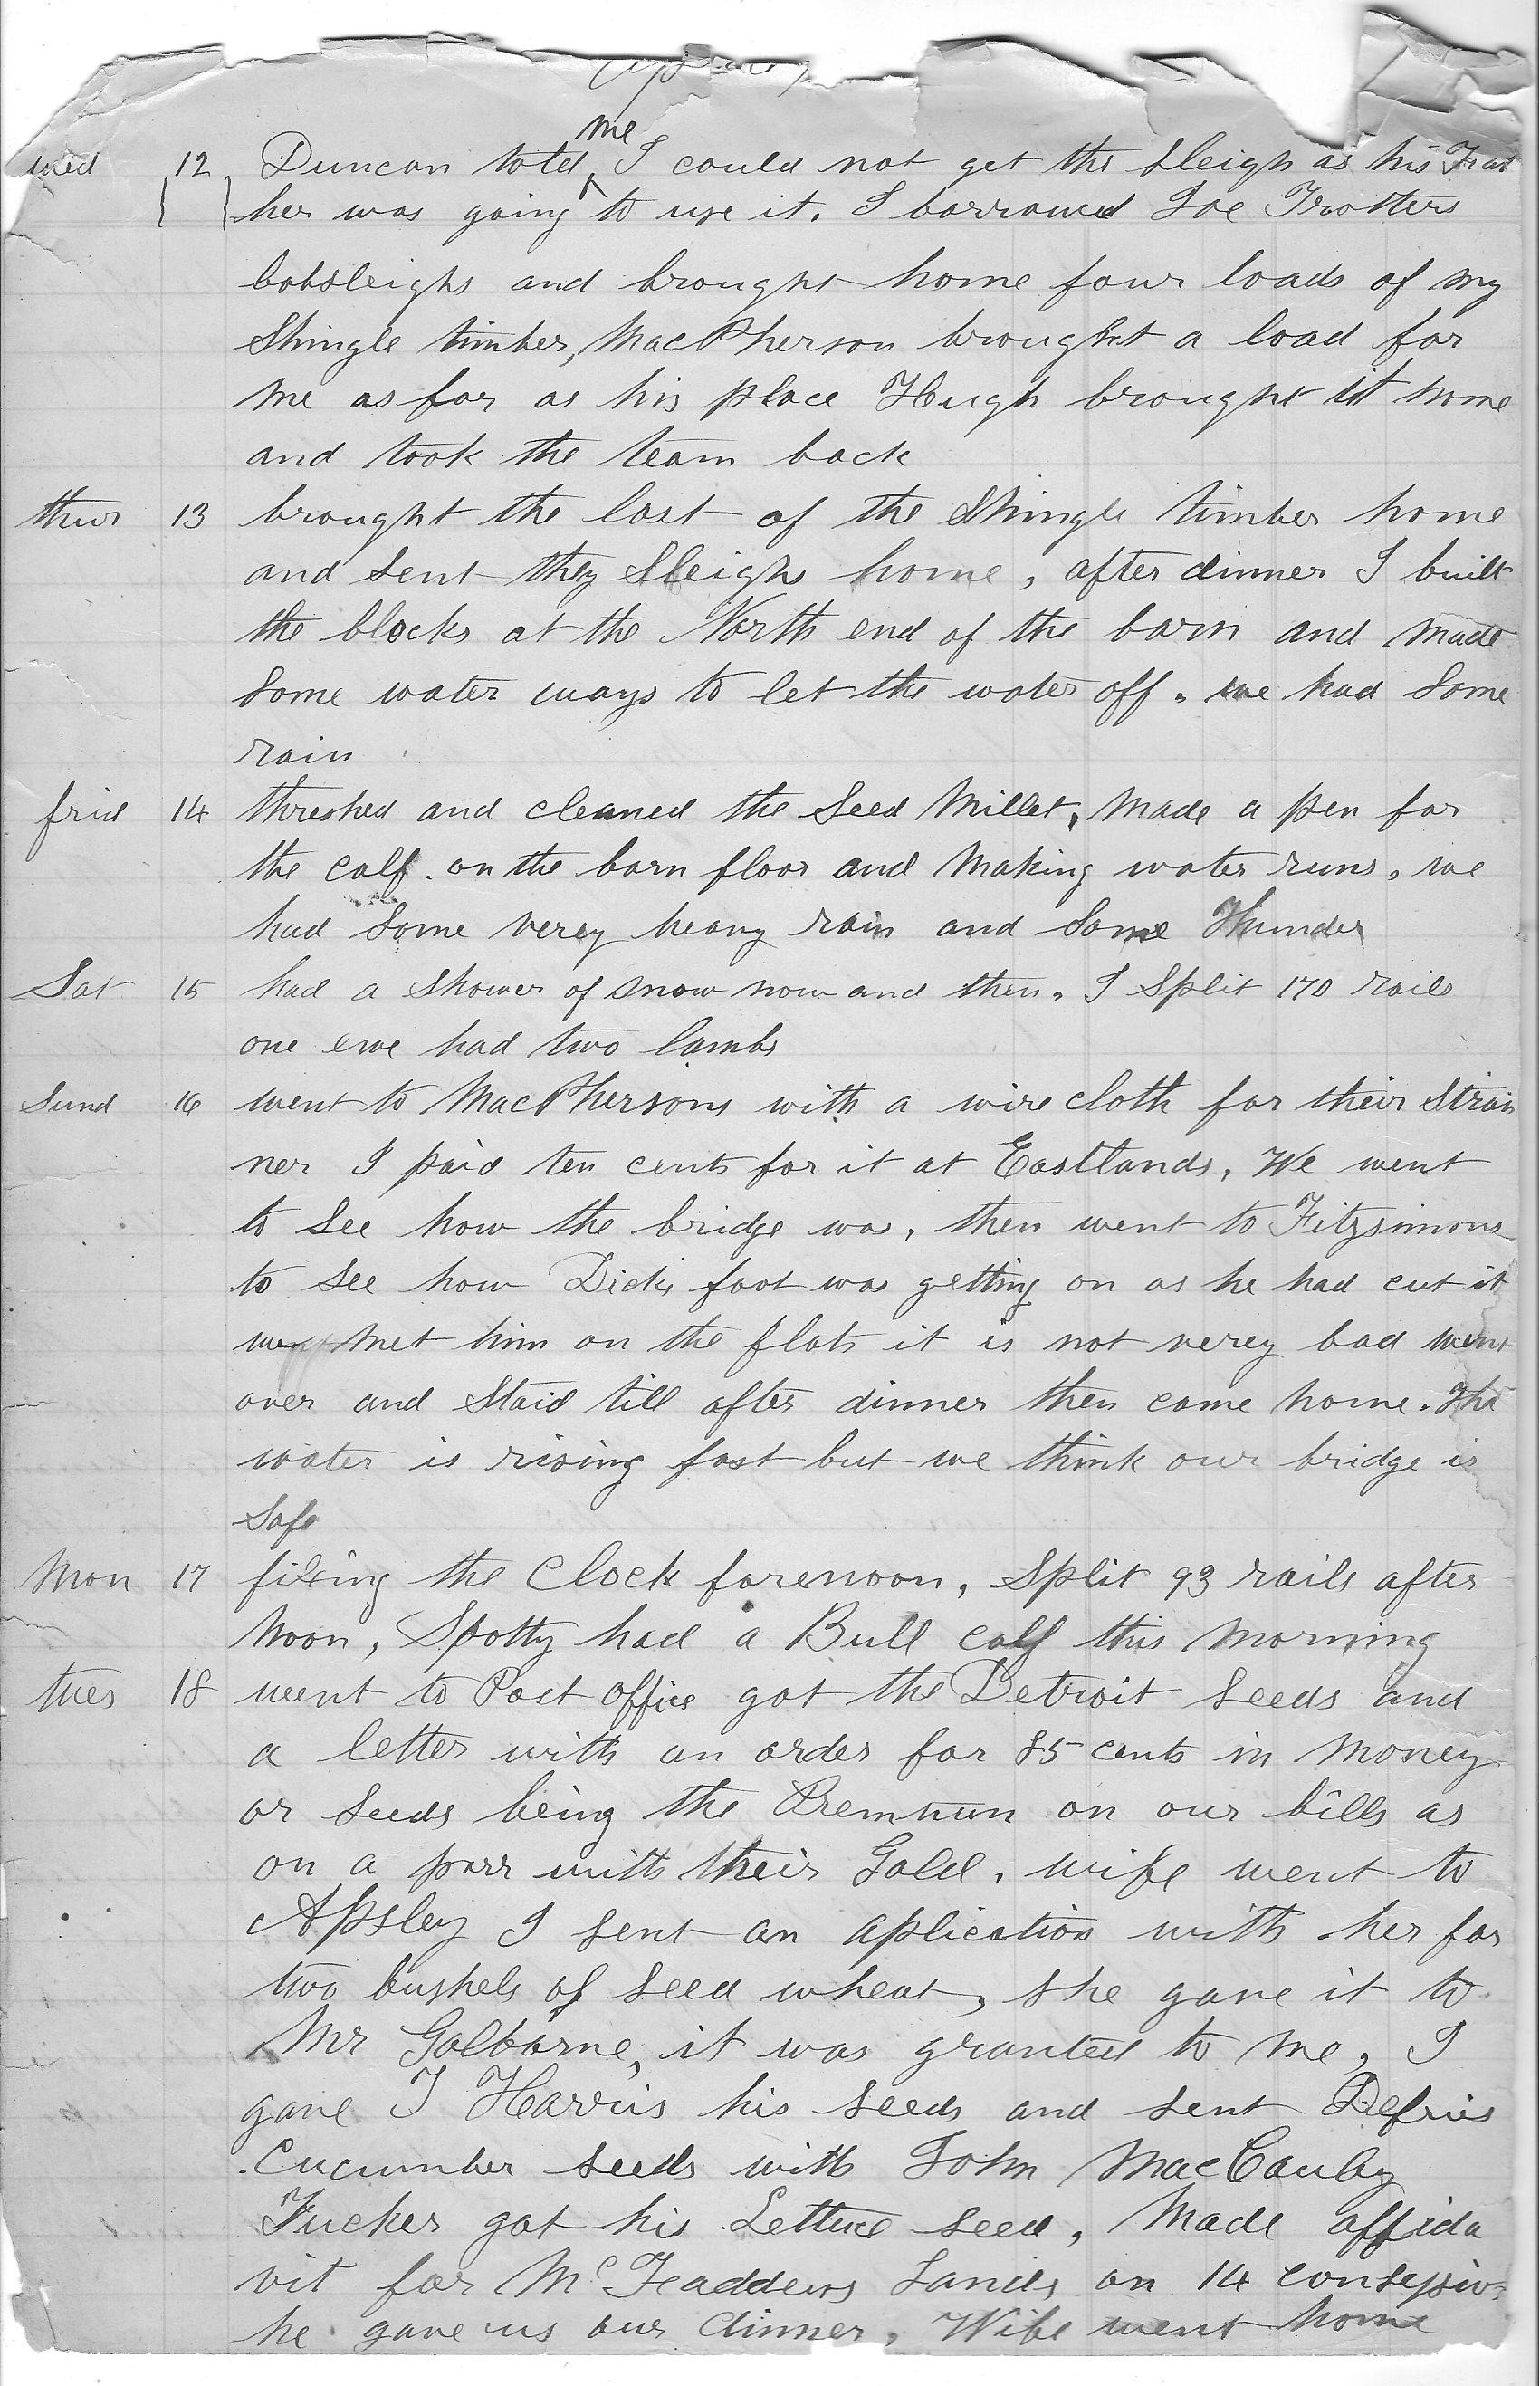 me
wed 12 Duncan told ^ I could not get the sleigh as his Fat
her was going to use it. I borrowed Joe Trotters
bobsleighs and brought home four loads of my
Shingle timber, MacPherson brought a load for
me as far as his place Hugh brought it home
and took the team back
thur 13 brought the last of the Shingle timber home
and sent they Sleighs home, after dinner I built
the blocks at the North end of the barn and made
Some water ways to let the water off. we had Some
rain
frid 14 threshed and cleaned the Seed Millet, Made a pen for
the calf. on the barn floor and Making water runs, we
had Some verey heavy rain and Some Thunder
Sat 15 had a Shower of snow now and then. I Split 170 rails
one ewe had two lambs
Sund 16 went to MacPhersons with a wire cloth for their Strai
ner I paid ten cents for it at Eastlands, We went
to See how the bridge was, then went to Fitzsimons
to See how Dicks foot was getting on as he had cut it
met him on the flats it is not verey bad went
over and Staid till after dinner then came home. The
water is rising fast but we think our bridge is
Safe
Mon 17 fixing the Clock forenoon, Split 93 rails after
Noon, Spotty had a Bull calf this Morning
tues 18 went to Post Office got the Detroit Seeds and
a letter with an order for 85 cents in Money
or Seeds being the Premium on our bills as
on a parr with their Gold. wife went to
Apsley I sent an aplication with her for
two bushels of Seed wheat, She gave it to
Mr Golborne, it was granted to Me, I
gave J Harris his Seeds and sent Defries
Cucumber Seeds with John MacCauley
Tucker got his Lettuce Seed, Made affida
vit for McFeaddens Lands on 14
he gave us our dinner, Wife went home